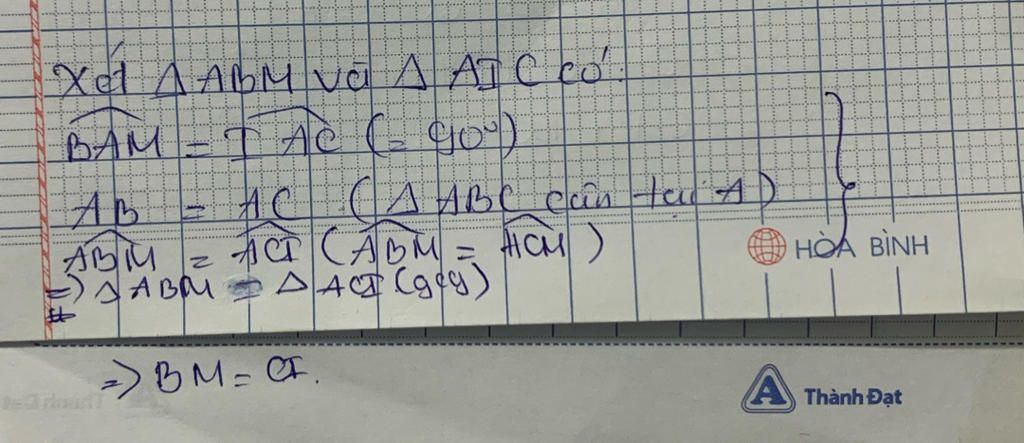 Xét Δ ABM và Δ AIC có:
BAM = IAC (= 90°)
AB = AC (Δ ABC cân tại A)
ABM = ACI (ABM = ACM)
=> Δ ABM = Δ ACI (gcg)
HÒA BÌNH
=> BM = CI.
Thành Đạt